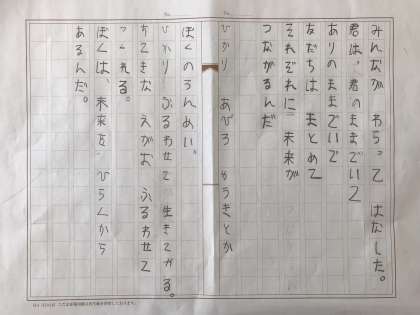 みんなが わらって はなした。
君は、君のままでいて
ありのままでいで
友だちは まとめて
それぞれに 未来が
つながるんだ
ひかり あびろ
ぼくのうんめい。
ひかり ふるわせて 生きてかる。
すてきな えがお ふるわせて
つくれる。
ぼくは、未来を ひらくから
あるんだ。